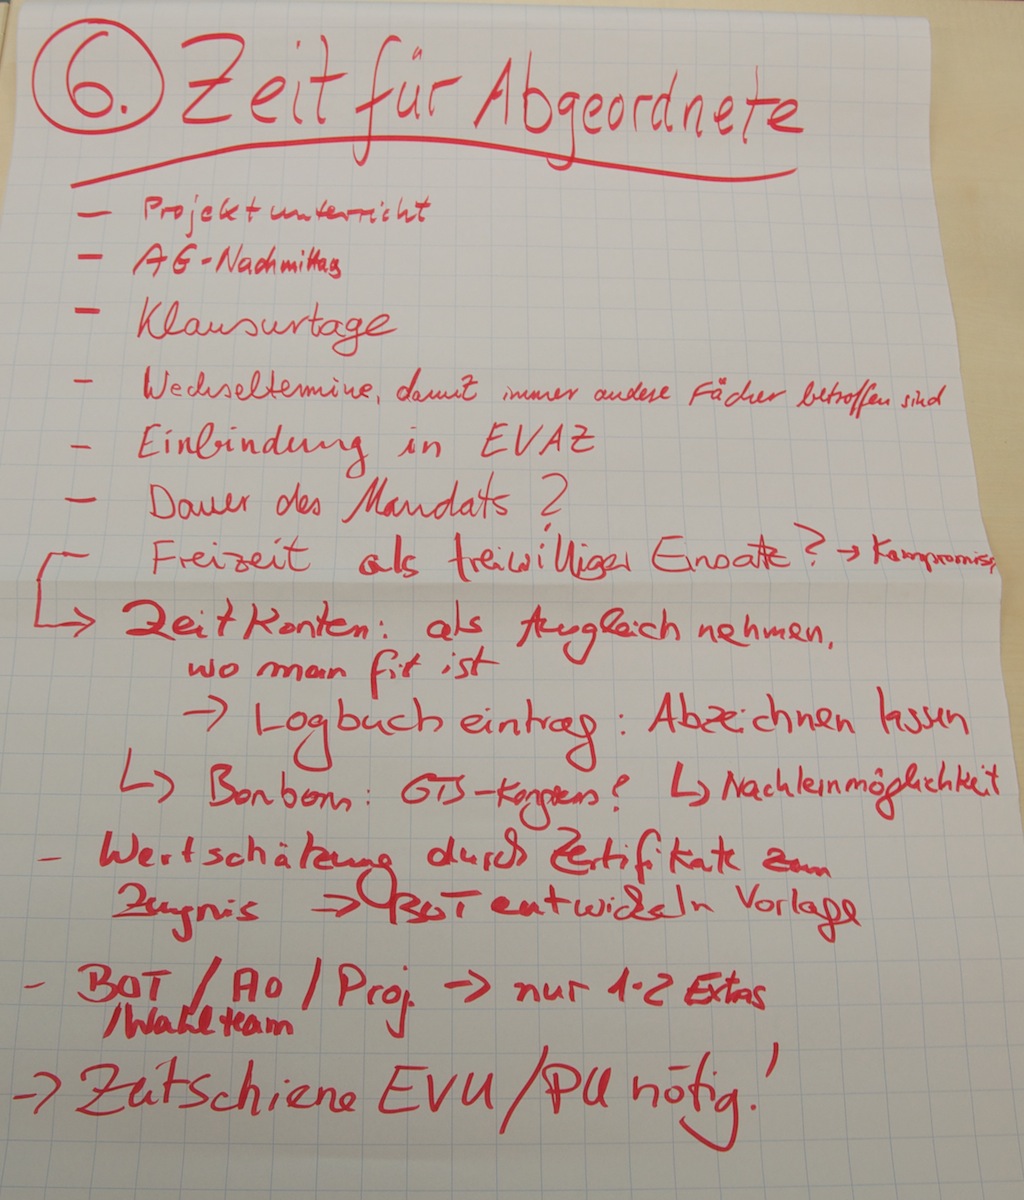 6. Zeit für Abgeordnete
- Projektunterricht
- AG-Nachmittag
- Klausurtage
- Wechseltermine, damit immer andere Fächer betroffen sind
- Einbindung in EVAZ
- Dauer des Mandats?
- Freizeit als freiwilliger Einsatz? → Kompromiss
→ Zeitkonten: als Ausgleich nehmen,
wo man fit ist
→ Logbucheintrag: Abzeichnen lassen
↳ Bonbons: GTS-Kongress? ↳ Nachlernmöglichkeit
- Wertschätzung durch Zertifikate zum
Zeugnis → BOT entwickeln Vorlage
- BOT / AO / Proj. → nur 1-2 Extras
/Wahlteam
→ Zeitschiene EVU/PU nötig!